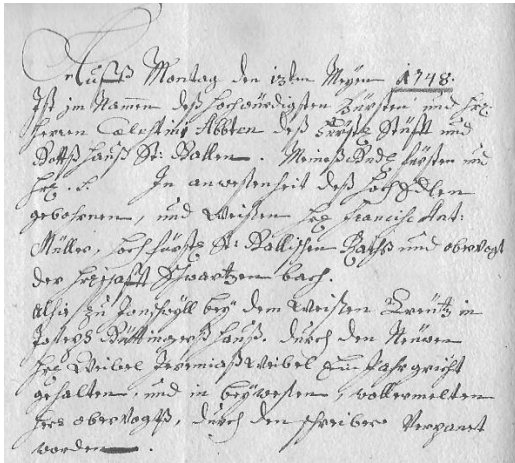 Auff Montag den 13ten Meyen 1748.
Ist im Nammen deß hochwürdigsten Fürsten und
Herren Cœlestini Abbten deß Stüfft und
Gottß hauß St: Gallen. Meineß Fürsten und
In anwessenheit deß hoch Edlen
gebohrnen, und Weissen Francisc Ant:
Müller, hochfürstl St: Gallischen Rathß und obervogt
der Schwartzen bach.
alhie zu Jonschwyll bey dem Weissen Creütz in
Joseph hauß. durch den Neüwen
Weibel Jeremiaß Weibel Ein Jahrgricht
gehalten, und in beywessen, wollermelten
obervogtß, durch den schreiber Verpant
worden.